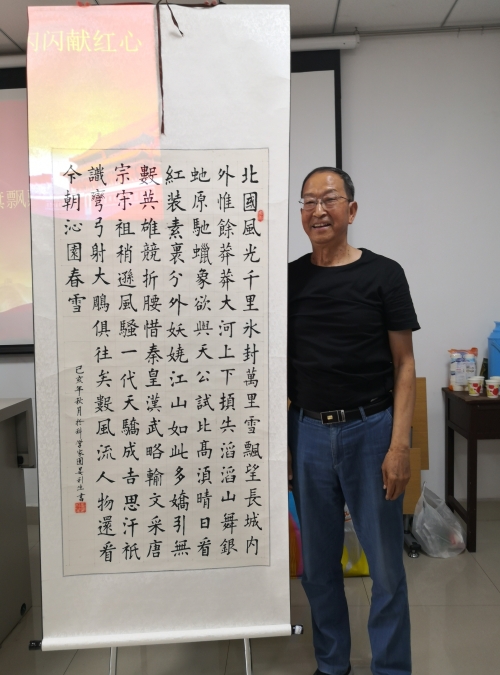 闪献红心
飘
北國風光千里氷封萬里雪飄望長城内
外惟餘莽莽大河上下頓失滔滔山舞銀
虵原馳蠟象欲與天公試比髙湏晴日看
紅装素裹分外妖嬈江山如此多嬌引無
數英雄競折腰惜秦皇漢武略輸文采唐
宗宋祖稍遜風騷一代天驕成吉思汗衹
識彎弓射大鵰俱往矣數風流人物還看
今朝沁園春雪
己亥年秋月於科學家園書